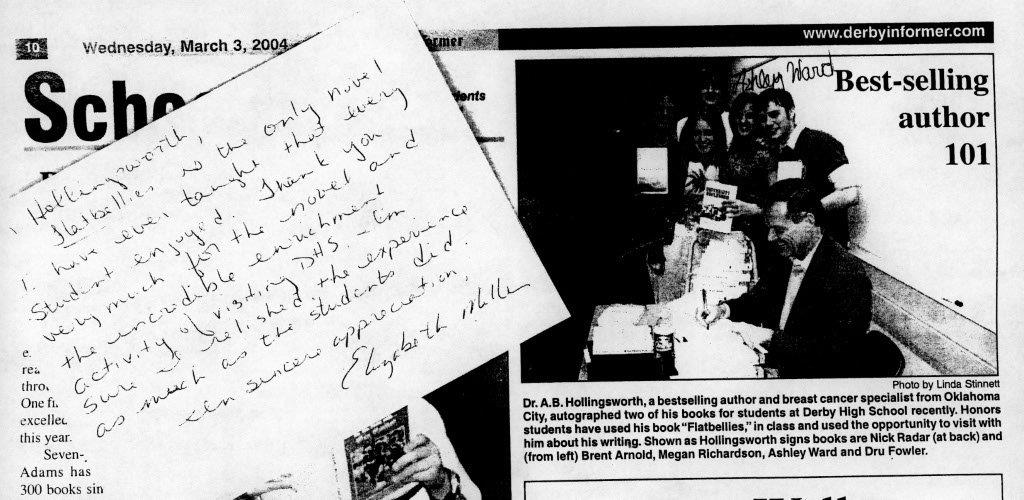 10
Wednesday, March 3, 2004
www.derbyinformer.com
Hollingsworth,
Flatbellies is the only novel
I have ever taught that every
student enjoyed. Thank you
very much for the novel and
the incredible enrichment
activity of visiting DHS. I'm
sure I relished the experience
as much as the students did.
sincere appreciation,
Elizabeth
e.
thro
One fi
excelled
this year.
Seven-
Adams has
300 books sin
Ashley Ward
Best-selling
author
101
Photo by Linda Stinnett
Dr. A.B. Hollingsworth, a bestselling author and breast cancer specialist from Oklahoma
City, autographed two of his books for students at Derby High School recently. Honors
students have used his book "Flatbellies," in class and used the opportunity to visit with
him about his writing. Shown as Hollingsworth signs books are Nick Radar (at back) and
(from left) Brent Arnold, Megan Richardson, Ashley Ward and Dru Fowler.